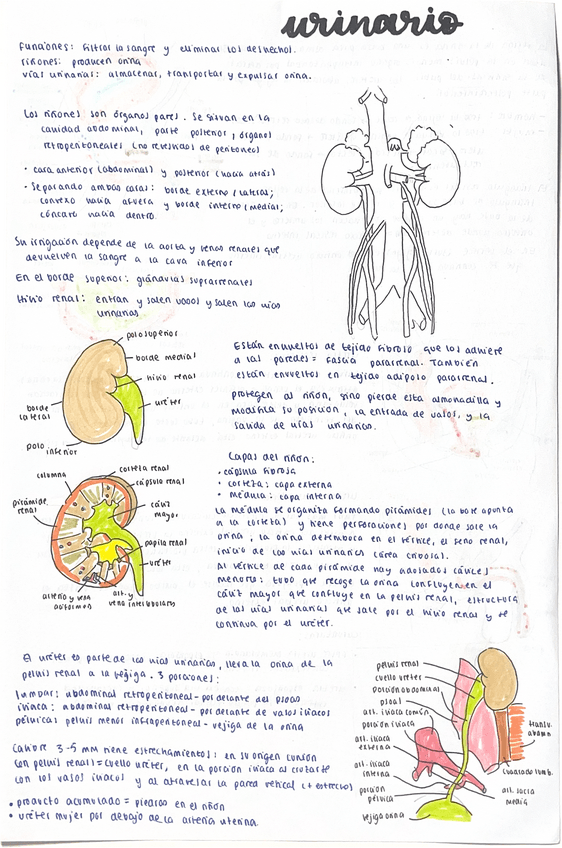 urinario
Funciones: filtrar la sangre y eliminar los deshechos.
riñones: producen orina
vías urinarias: almacenar, transportar y expulsar orina.
Los riñones son órganos pares. Se situan en la
cavidad abdominal, parte posterior, órganos
retroperitoneales (no revestidos de peritoneo)
• cara anterior (abdominal) y posterior (hacia atrás)
• Separando ambas caras: borde externo/lateral;
convexo hacia afuera y borde interno/medial;
cóncavo hacia dentro.
Su irrigación depende de la aorta y venas renales que
devuelven la sangre a la cava inferior
En el borde superior: glándulas suprarrenales
Hilio renal: entran y salen vasos y salen las vías
urinarias.
polo superior
borde medial
hilio renal
uréter
borde
lateral
polo
inferior
Están envueltos de tejido fibroso que los adhiere
a las paredes = fascia pararrenal. También
están envueltos en tejido adiposo pararrenal.
protegen al riñón, sino pierde esta almohadilla y
modifica su posición, la entrada de vasos, y la
salida de vías urinarias.
Capas del riñón:
• cápsula fibrosa
• corteza: capa externa
• médula: capa interna
La médula se organiza formando pirámides (la base apunta
a la corteza) y tiene perforaciones por donde sale la
orina, la orina desemboca en el vértice, el seno renal,
inicio de las vías urinarias (área cribosa).
Al vértice de cada pirámide hay adosados cálices
menores: tubo que recoge la orina confluyen en el
cáliz mayor que confluye en la pelvis renal, estructura
de las vías urinarias que sale por el hilio renal y se
continua por el uréter.
columna
corteza renal
cápsula renal
pirámide
renal
cáliz
mayor
papila renal
uréter
arteria y vena
art. y
vena interlobulares
El uréter es parte de las vías urinarias, lleva la orina de la
pelvis renal a la vejiga. 3 porciones:
lumbar: abdominal retroperitoneal - por delante del psoas
ilíaca: abdominal retroperitoneal - por delante de vasos ilíacos
pélvica: pelvis menos infraperitoneal - vejiga de la orina
Calibre 3-5 mm tiene estrechamientos: en su origen cunsón
con pelvis renal = cuello uréter, en la porción ilíaca al cruzarse
con los vasos ilíacos y al atravesar la pared vesical (+ estrecho)
• producto acumulado = piedras en el riñón
• uréter mujer por debajo de la arteria uterina.
pelvis renal
cuello uréter
porción abdominal
psoas
art. ilíaca común
porción ilíaca
art. ilíaca
externa
art. ilíaca
interna
porción
pélvica
vejiga orina
transv.
abdom
cuadrado lumb.
art. sacra
media